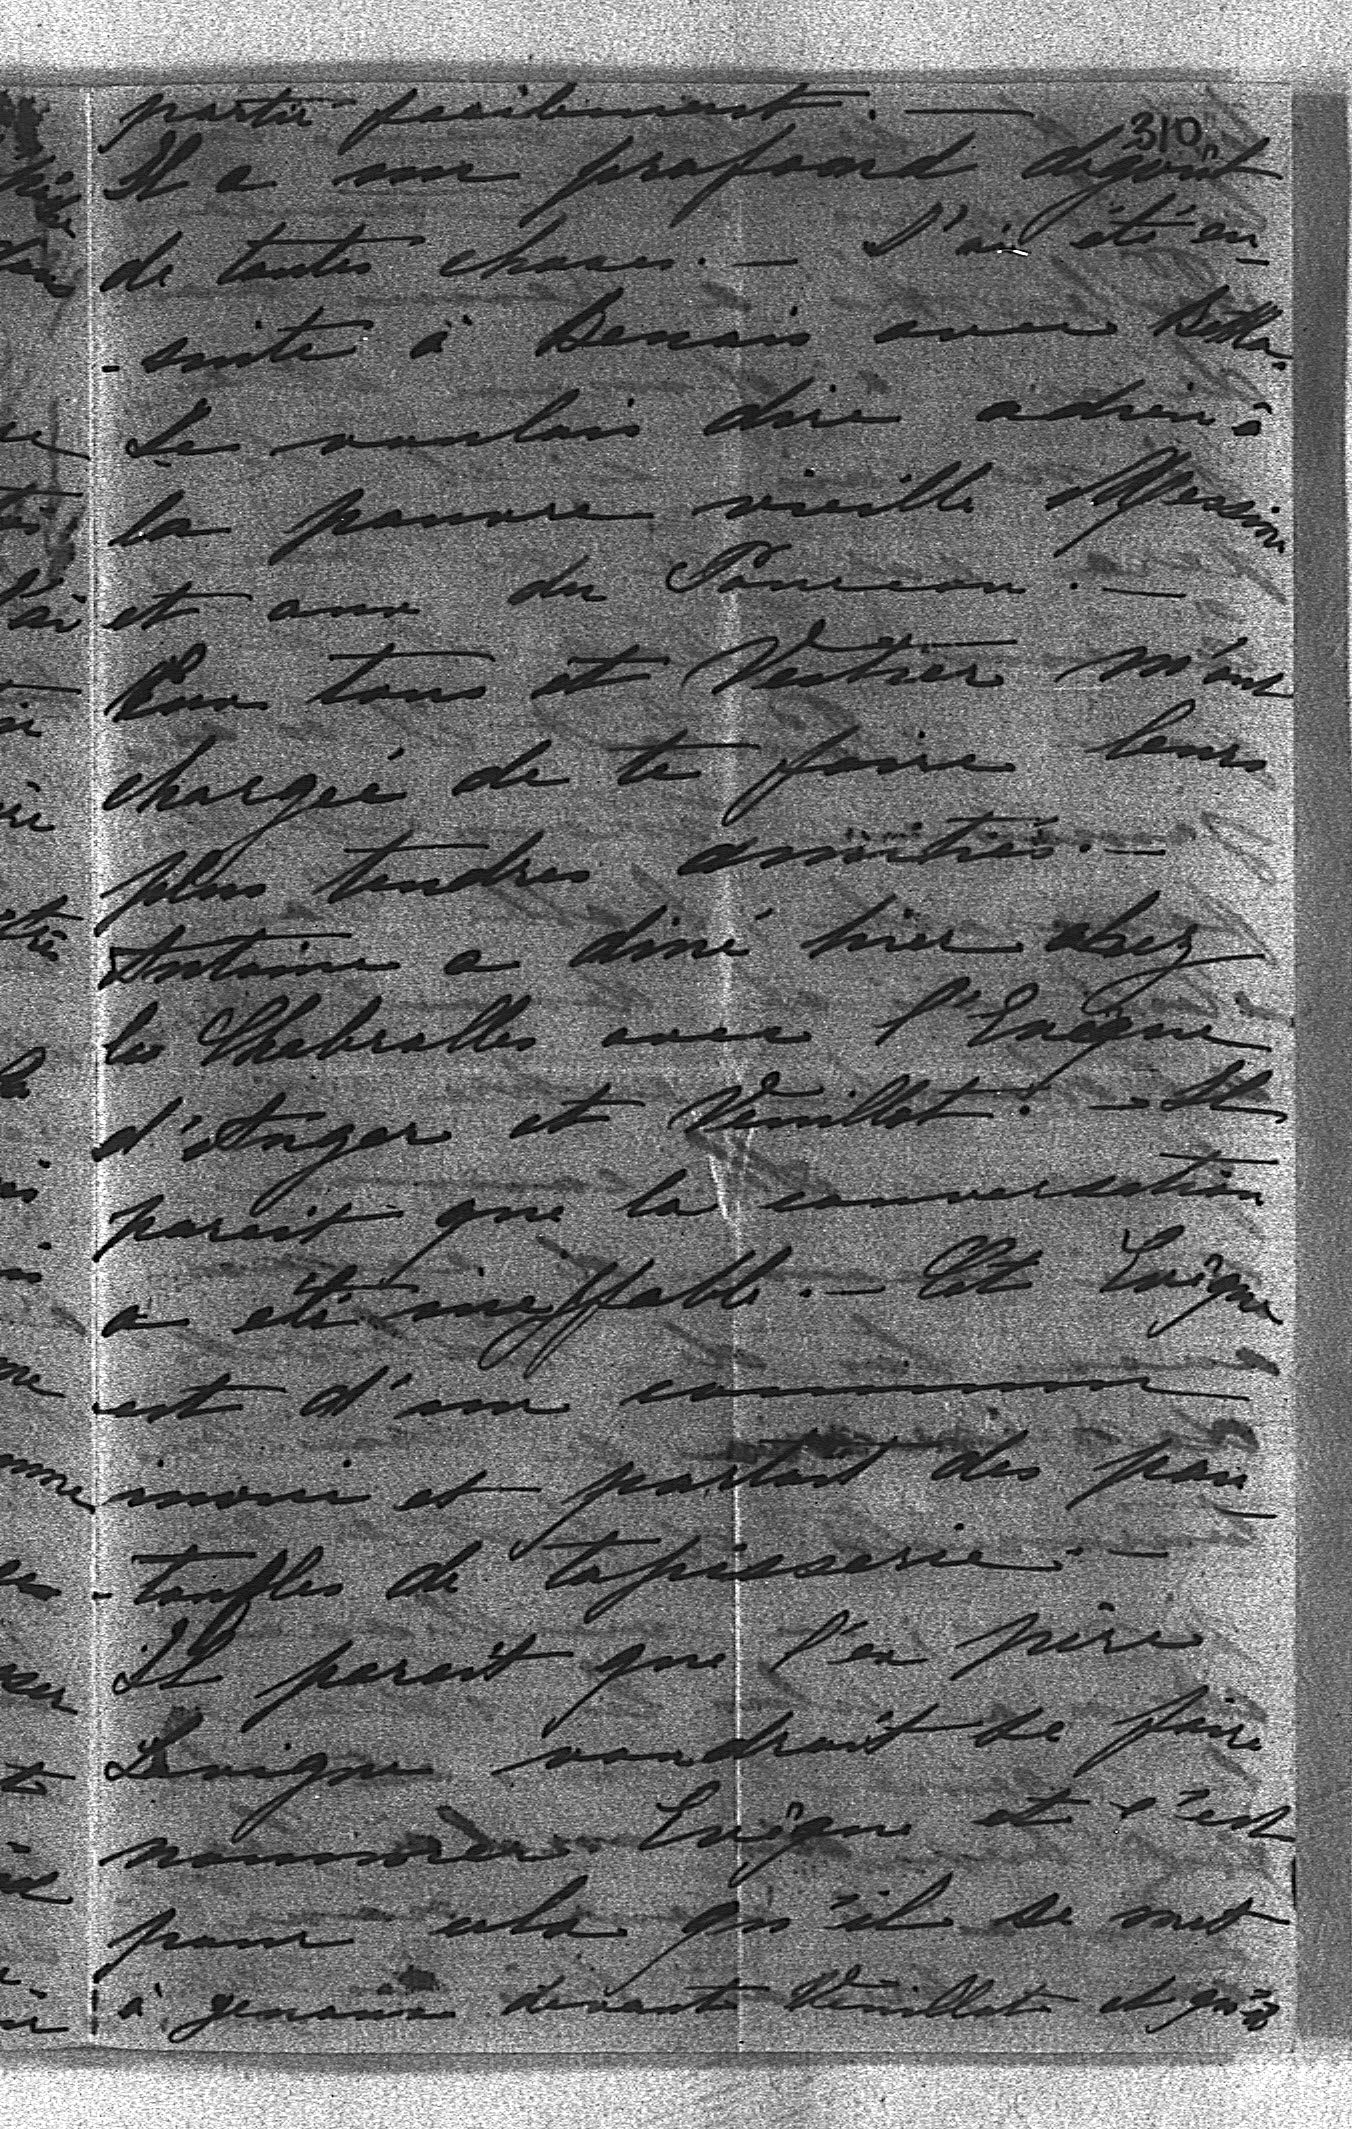 310
partir péniblement. —
Il a un profond dégout
de toutes choses. — J'ai été en-
-suite à Benais avec
Je voulais dire adieu à
la pauvre vieille
et aux du Ponceau. —
Eux tous et Vestier m'ont
chargé de te faire leurs
plus tendres amitiés. —
Antoine a diné hier chez
les Chabrolles avec l'Evêque
d'Anger et Veuillot. — Il
parait que la conversation
a été ineffable. — Cet Evêque
est d'un commun
inoui et portait des pan-
-toufles de tapisserie. —
Il parait que l'ex père
voudrait se faire
nommer Evêque et c'est
pour cela qu'il se met
à genoux devant Veuillot et qu'il